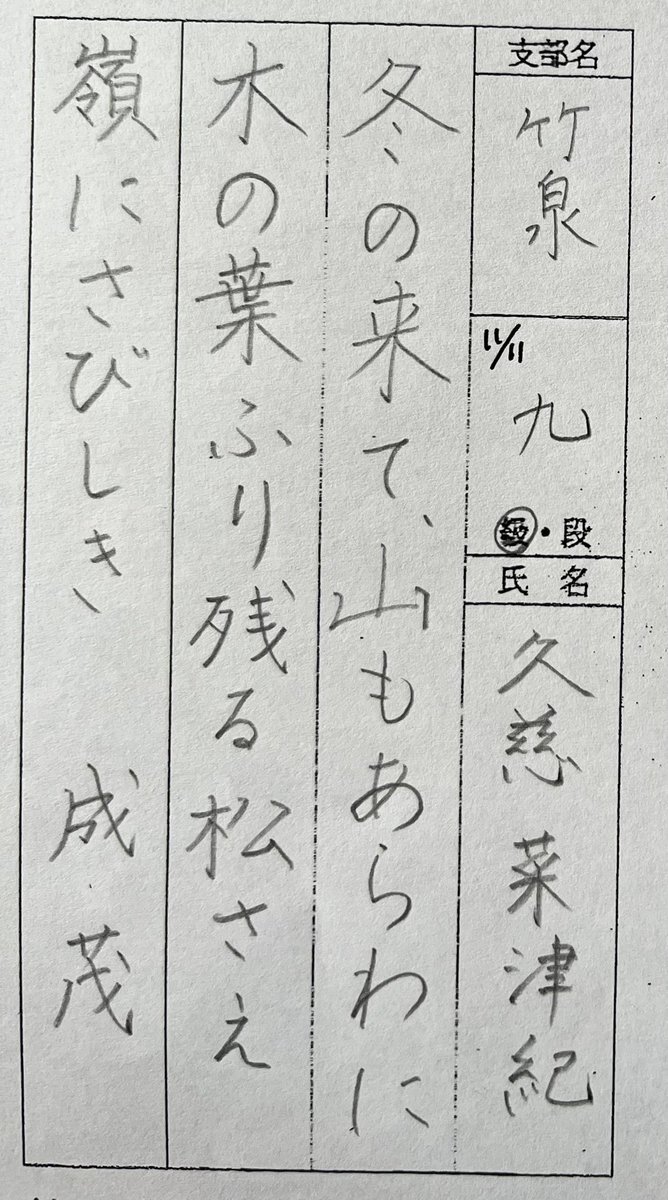 支部名
竹泉
11/11
九
級・段
氏名
久慈菜津紀
冬の来て、山もあらわに
木の葉ふり残る松さえ
嶺にさびしき 成茂